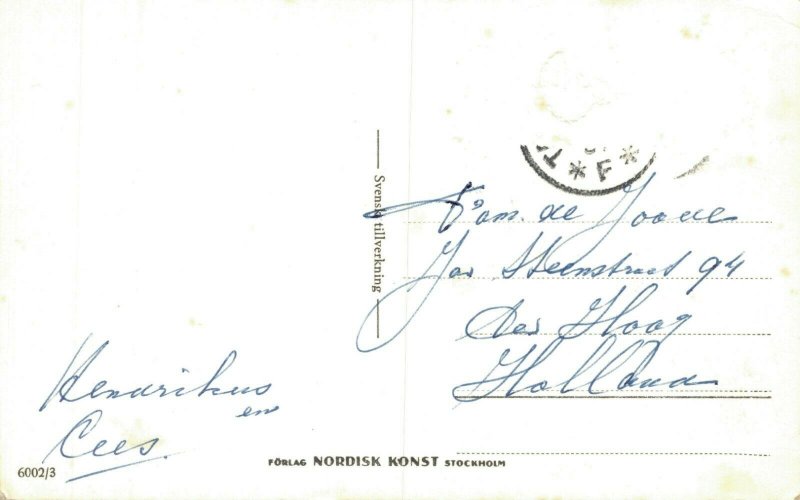 * F *
Svensk tillverkning
Fam. de
Jan Steenstraat 94
Den Haag
Holland
Hendrikus
en
Cees.
6002/3
FÖRLAG NORDISK KONST STOCKHOLM